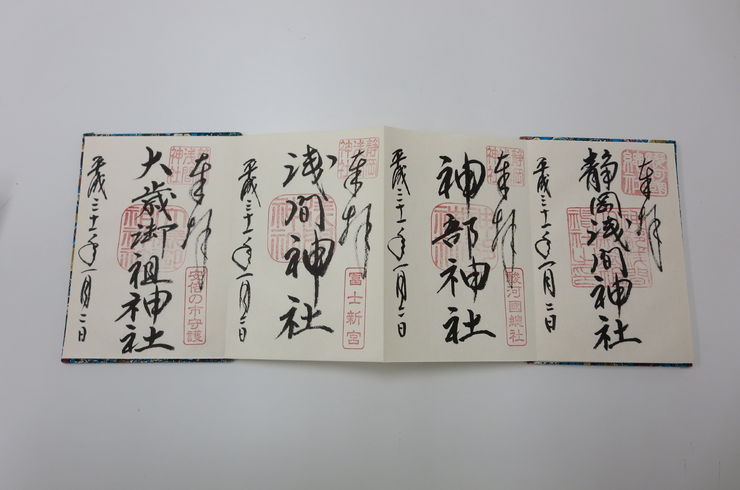 奉拝
静岡浅間神社
平成三十一年一月二日
静岡
浅間
神社
奉拝
神部神社
駿河國総社
平成三十一年一月二日
静岡
浅間
神社
奉拝
浅間神社
冨士新宮
平成三十一年一月二日
静岡
浅間
神社
奉拝
大歳御祖神社
安倍の市守護
平成三十一年一月二日